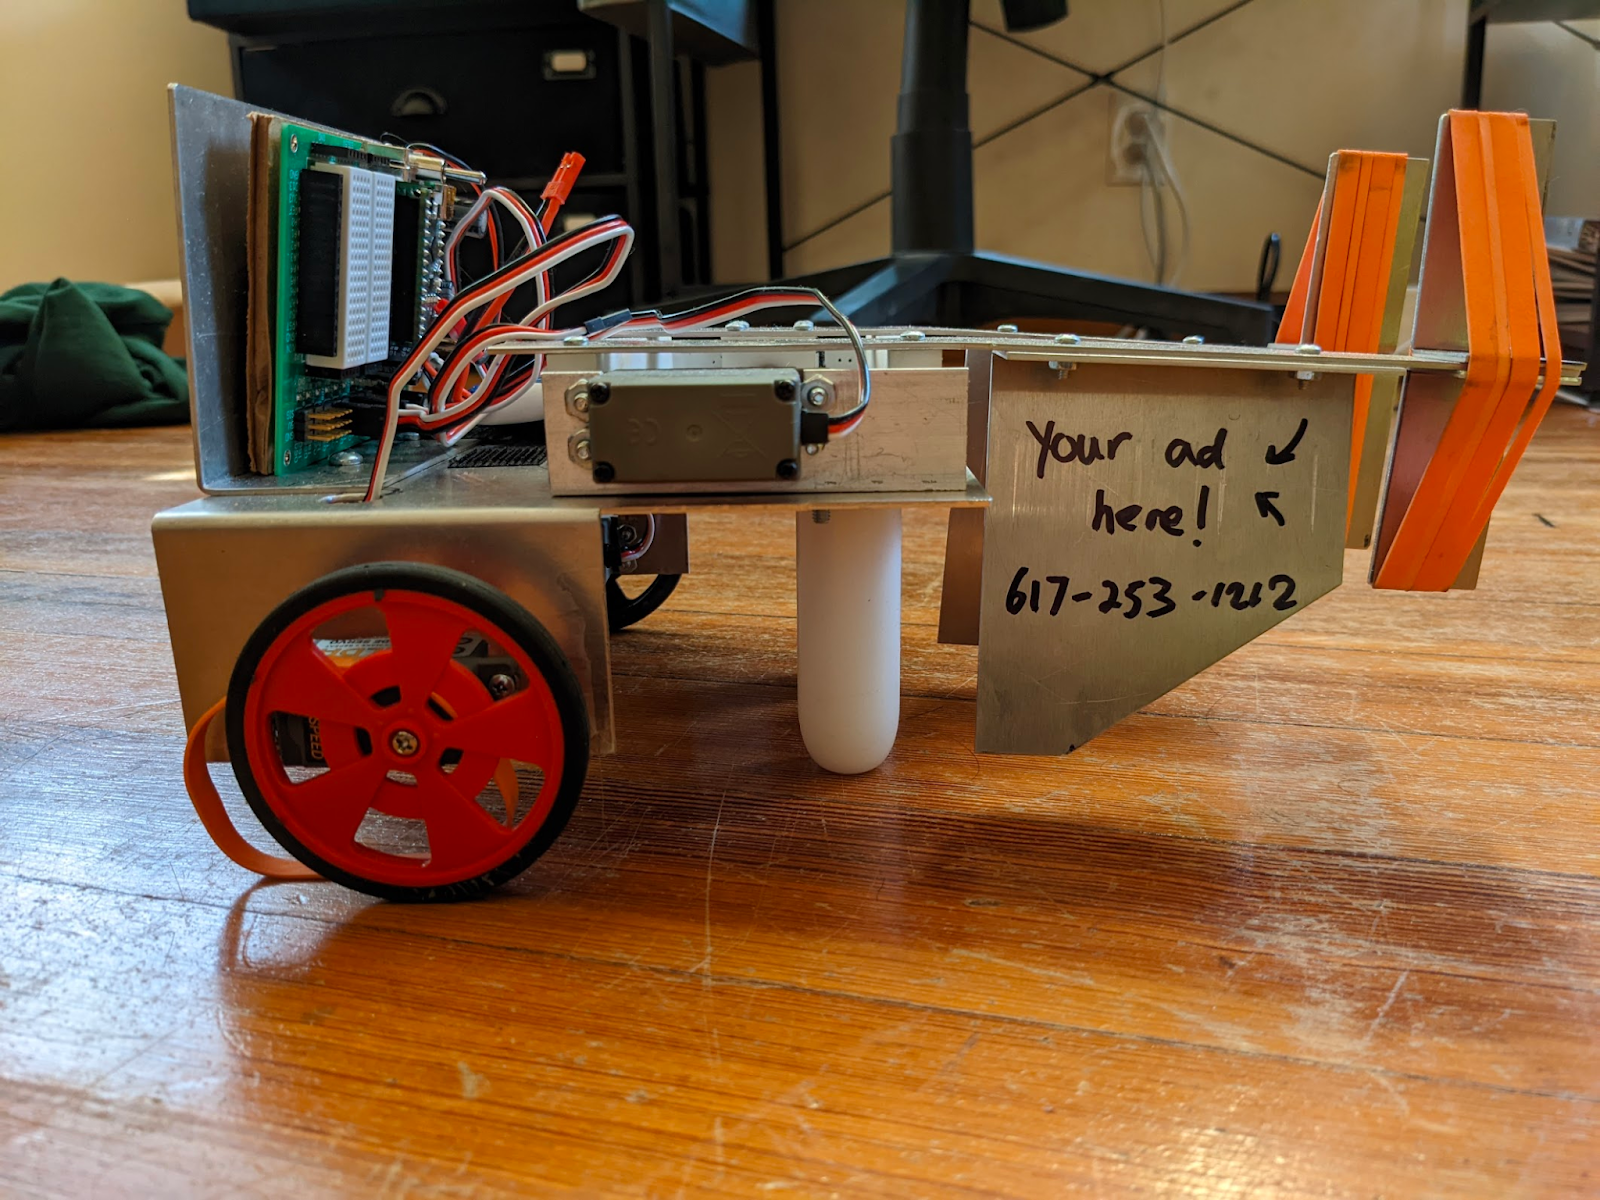 Your ad
here!
617-253-1212
SPEED